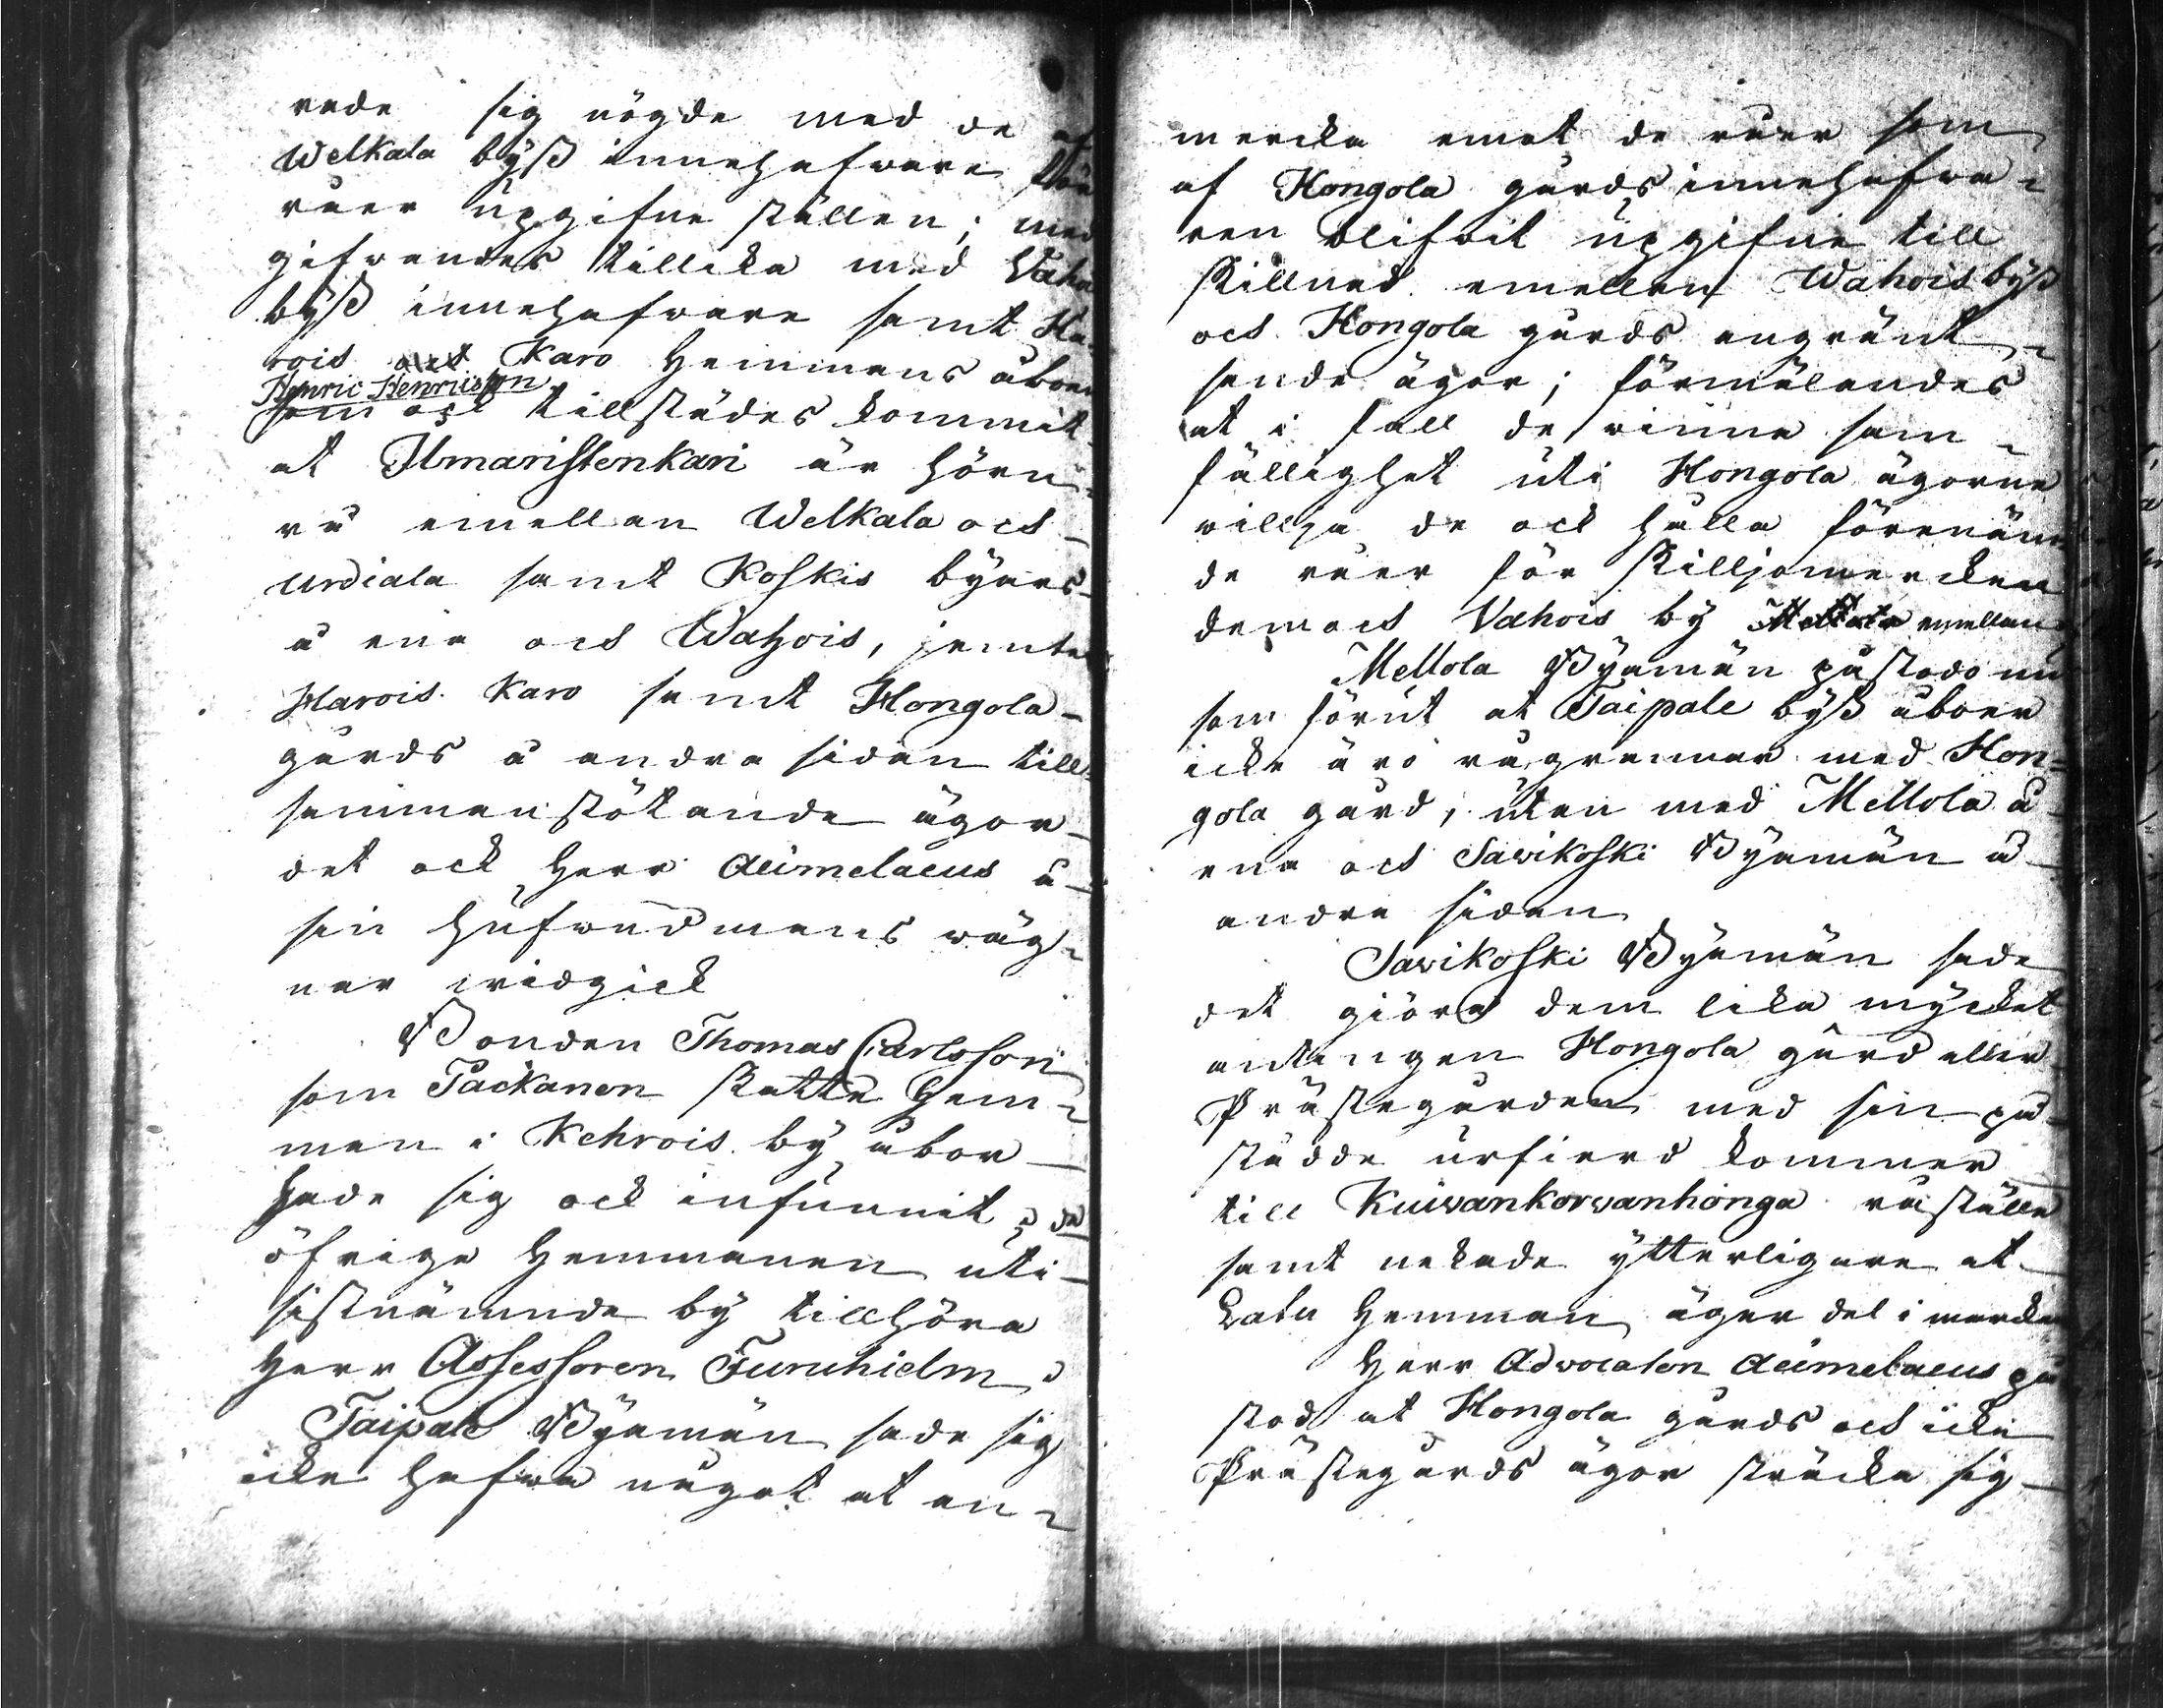 rade sig nögde med de af
Welkala byß innehafware för
råer upgifne ställen; med
gifwandes tillika med Vaho
byß innehafware samt Ha
rois Karo Hemmans åboer
Henric Henricsson
som ock tillstädes kommit
at Ilmaristenkari är hörn
rå emellan Welkala och
Urdiala samt Koskis byars
å ena och Wahois, jemte
Harois Karo samt Hongola
gårds å andra sidan till
sammanstötande ägor
det ock Herr Aeimelaeus å
sin hufwudmans wäg-
nar widgick
Bonden Thomas Carlsson
som Päckanen Skatte Hem-
man i Kehrois by åbor
hade sig ock infunnit, de
öfrige Hemmanen uti
sistnämnde by tillhöra
Herr Assessoren Furuhielm
Taipale Byamän sade sig
icke hafwa något at an-
mercka emot de råer som
af Hongola gårds innehafwa-
ren blifwit upgifne till
skillnad emellan Wahois byß
och Hongola gårds angränt-
sande ägor; förmälandes
at i fall de winna sam-
fällighet uti Hongola ägorne
willja de ock hålla förenämn
de råer för skilljomercken
dem och Vahois by emellan
Mellola Byamän påstodo nu
som förut at Taipale byß åboer
icke äro rågrannar med Hon-
gola gård, utan med Mellola å
ena och Sawikoski Byamän å
andra sidan
Sawikoski Byamän sade
det giöra dem lika mycket
antingen Hongola gård eller
Prästegården med sin på
stådde urfierd kommer
till Kuiwankorwanhonga råställe
samt nekade ytterligare at
Latu Hemman äger del i marcken
Herr Advocaten Aeimelaeus på
stod at Hongola gårds och icke
Prästegårds ägor sträcka sig